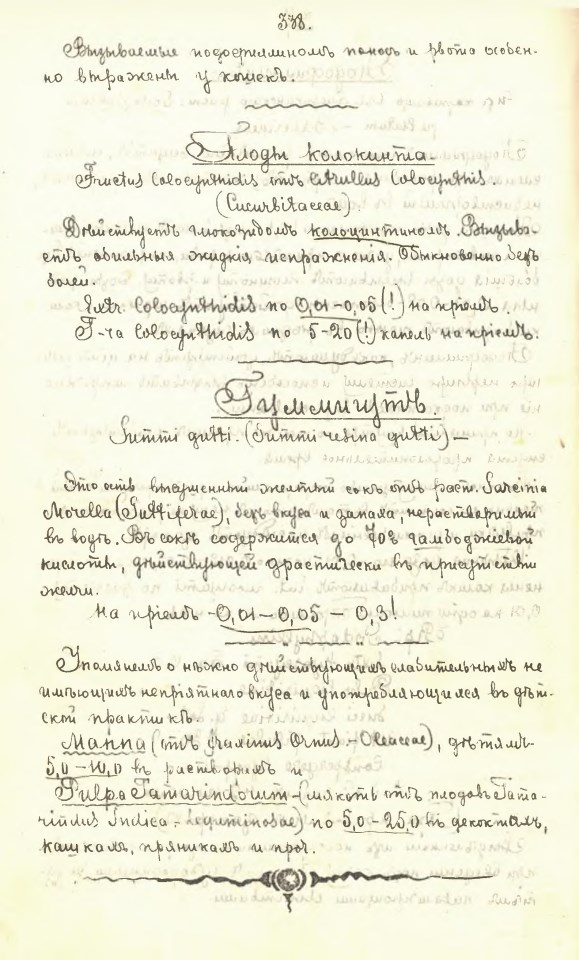 338.
Вызываемые подофиллиномъ поносъ и рвота особен-
но выражены у кошекъ.
Плоды колокинта.
Fructus Colocynthidis отъ Citrullus Colocynthis.
(Cucurbitaceae).
Дѣйствуетъ глюкозидомъ колоцинтиномъ. Вызыва-
етъ обильныя жидкія испражненія. Обыкновенно безъ
болей.
Extr. Colocynthidis по 0,01-0,05(!) на пріемъ.
T-ra Colocynthidis по 5-20(!) капель на пріемъ.
Гуммигутъ.
Gummi gutti. (Gummi resina gutti) —
Это есть высушенный желтый сокъ отъ раст. Garcinia
Morella (Guttiferae), безъ вкуса и запаха, нерастворимый
въ водѣ. Въ сокѣ содержится до 70% гамбоджіевой
кислоты, дѣйствующей драстически въ присутствіи
желчи.
На пріемъ - 0,01 - 0,05 - 0,3!
Упомянемъ о нѣжно дѣйствующихъ слабительныхъ не
имѣющихъ непріятнаго вкуса и употребляющихся въ дѣт-
ской практикѣ.
Манна (отъ Fraxinus Ornus. - Oleaceae), дѣтямъ-
5,0 - 10,0 въ растворахъ и
Pulpa Tamarindorum - (мякоть отъ плодовъ Tama-
rindus Indica. - Leguminosae) по 5,0 - 25,0 въ декоктахъ,
кашкахъ, пряникахъ и проч.